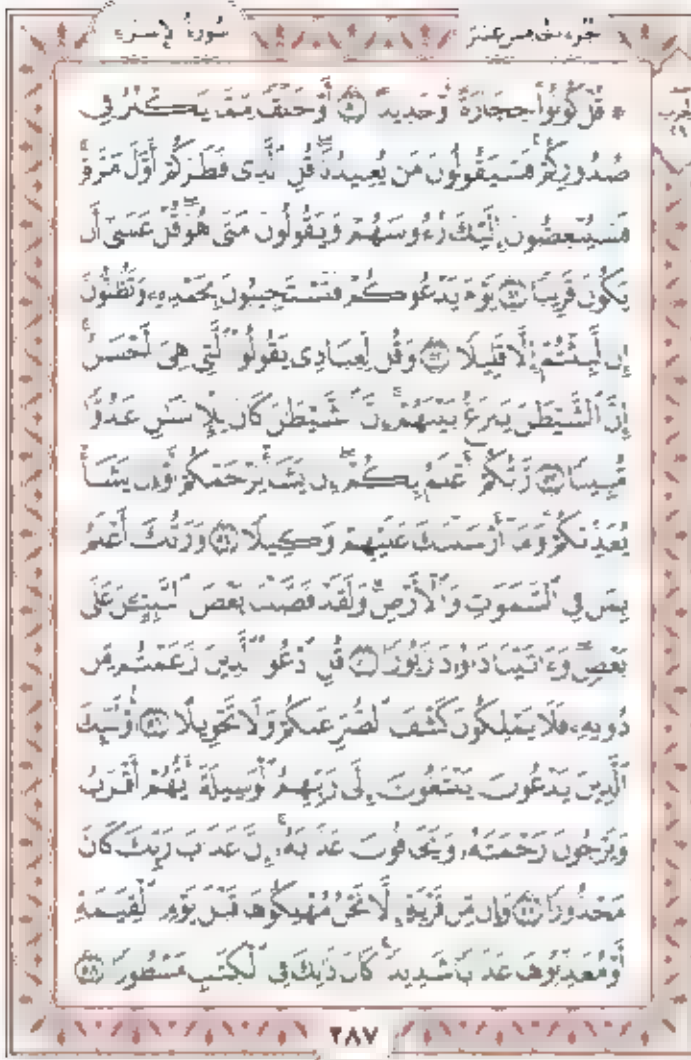 سورة الإسراء
الجزء الخامس عشر
الحزب
٢٩
۞ قُلْ كُونُوا۟ حِجَارَةً أَوْ حَدِيدًا ۝٥٠ أَوْ خَلْقًا مِّمَّا يَكْبُرُ فِى
صُدُورِكُمْ ۚ فَسَيَقُولُونَ مَن يُعِيدُنَا ۖ قُلِ ٱلَّذِى فَطَرَكُمْ أَوَّلَ مَرَّةٍ ۚ
فَسَيُنْغِضُونَ إِلَيْكَ رُءُوسَهُمْ وَيَقُولُونَ مَتَىٰ هُوَ ۖ قُلْ عَسَىٰٓ أَن
يَكُونَ قَرِيبًا ۝٥١ يَوْمَ يَدْعُوكُمْ فَتَسْتَجِيبُونَ بِحَمْدِهِۦ وَتَظُنُّونَ
إِن لَّبِثْتُمْ إِلَّا قَلِيلًا ۝٥٢ وَقُل لِّعِبَادِى يَقُولُوا۟ ٱلَّتِى هِىَ أَحْسَنُ ۚ
إِنَّ ٱلشَّيْطَٰنَ يَنزَغُ بَيْنَهُمْ ۚ إِنَّ ٱلشَّيْطَٰنَ كَانَ لِلْإِنسَٰنِ عَدُوًّا
مُّبِينًا ۝٥٣ رَّبُّكُمْ أَعْلَمُ بِكُمْ ۖ إِن يَشَأْ يَرْحَمْكُمْ أَوْ إِن يَشَأْ
يُعَذِّبْكُمْ ۚ وَمَآ أَرْسَلْنَٰكَ عَلَيْهِمْ وَكِيلًا ۝٥٤ وَرَبُّكَ أَعْلَمُ
بِمَن فِى ٱلسَّمَٰوَٰتِ وَٱلْأَرْضِ ۗ وَلَقَدْ فَضَّلْنَا بَعْضَ ٱلنَّبِيِّـۧنَ عَلَىٰ
بَعْضٍ ۖ وَءَاتَيْنَا دَاوُۥدَ زَبُورًا ۝٥٥ قُلِ ٱدْعُوا۟ ٱلَّذِينَ زَعَمْتُم مِّن
دُونِهِۦ فَلَا يَمْلِكُونَ كَشْفَ ٱلضُّرِّ عَنكُمْ وَلَا تَحْوِيلًا ۝٥٦ أُو۟لَٰٓئِكَ
ٱلَّذِينَ يَدْعُونَ يَبْتَغُونَ إِلَىٰ رَبِّهِمُ ٱلْوَسِيلَةَ أَيُّهُمْ أَقْرَبُ
وَيَرْجُونَ رَحْمَتَهُۥ وَيَخَافُونَ عَذَابَهُۥٓ ۚ إِنَّ عَذَابَ رَبِّكَ كَانَ
مَحْذُورًا ۝٥٧ وَإِن مِّن قَرْيَةٍ إِلَّا نَحْنُ مُهْلِكُوهَا قَبْلَ يَوْمِ ٱلْقِيَٰمَةِ
أَوْ مُعَذِّبُوهَا عَذَابًا شَدِيدًا ۚ كَانَ ذَٰلِكَ فِى ٱلْكِتَٰبِ مَسْطُورًا ۝٥٨
٢٨٧